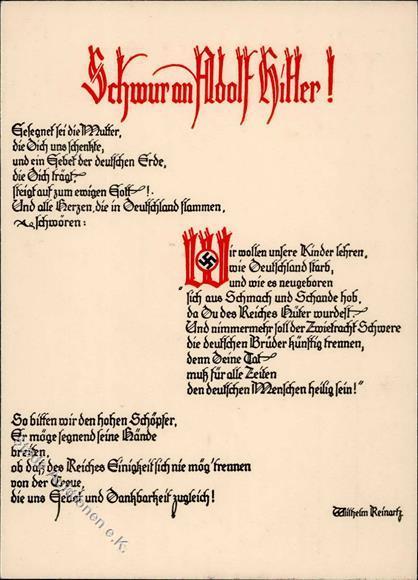 Schwur an Adolf Hitler!
Gesegnet sei die Mutter,
die Dich uns schenkte,
und ein Gebet der deutschen Erde,
die Dich trägt,
steigt auf zum ewigen Gott!
Und alle Herzen, die in Deutschland flammen,
schwören:
Wir wollen unsere Kinder lehren,
wie Deutschland starb,
und wie es neugeboren
sich aus Schmach und Schande hob,
da Du des Reiches Hüter wurdest
Und nimmermehr soll der Zwietracht Schwere
die deutschen Brüder künftig trennen,
denn Deine Tat
muß für alle Zeiten
den deutschen Menschen heilig sein!"
So bitten wir den hohen Schöpfer,
Er möge segnend seine Hände
breiten,
ob daß des Reiches Einigkeit sich nie mög' trennen
von der Treue,
die uns Gebet und Dankbarkeit zugleich!
Wilhelm Reinartz
e.K.